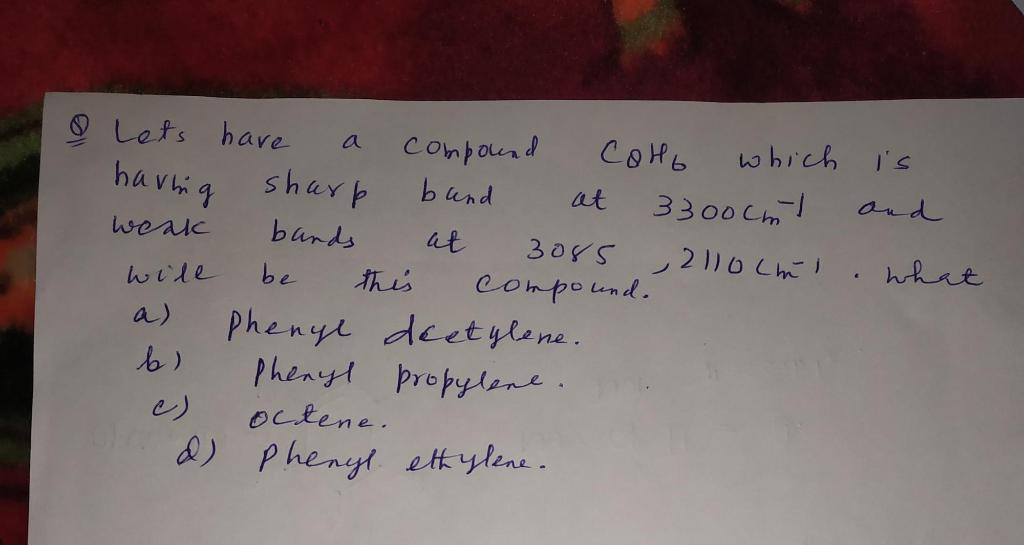 Q Lets have a compound C8H6 which is
having sharp band at 3300cm-1 and
weak bands at 3085 , 2110cm-1 . what
will be this compound.
a) Phenyl acetylene.
b) Phenyl propylene.
c) octene.
d) Phenyl ethylene.